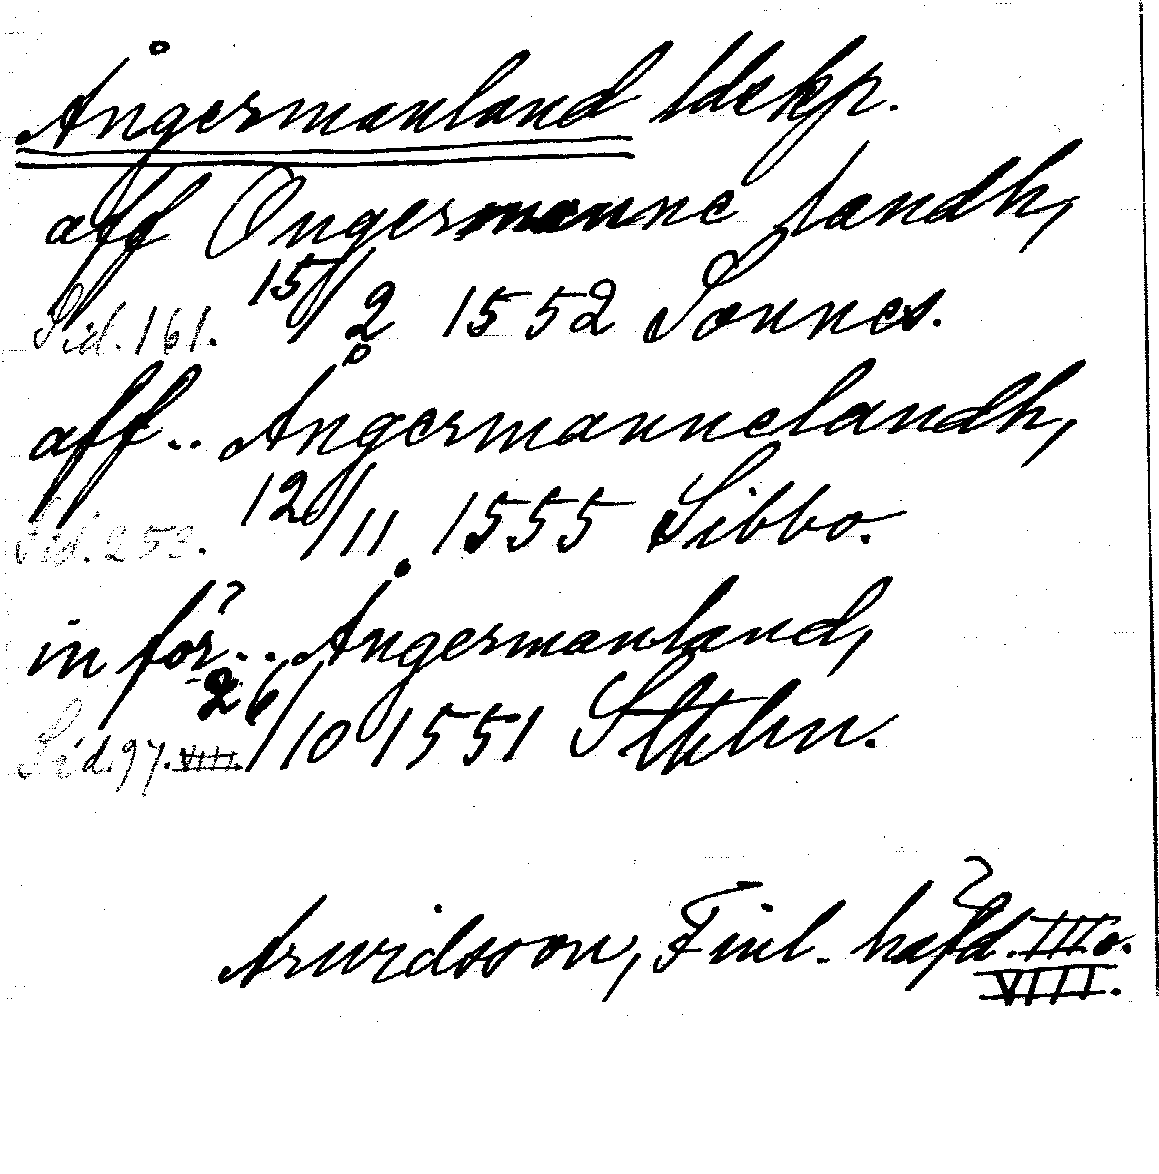 Ångermanland ldskp.
aff Ongermanne landh,
Sid. 161. 15/2 1552 Sonnes.
aff.. Ångermannelandh,
Sid. 253. 12/11 1555 Sibbo.
in för.. Ångermanland,
Sid. 97. VIII. 26/10 1551 Sthlm.
Arwidsson, Finl. häfd. III o.
VIII.